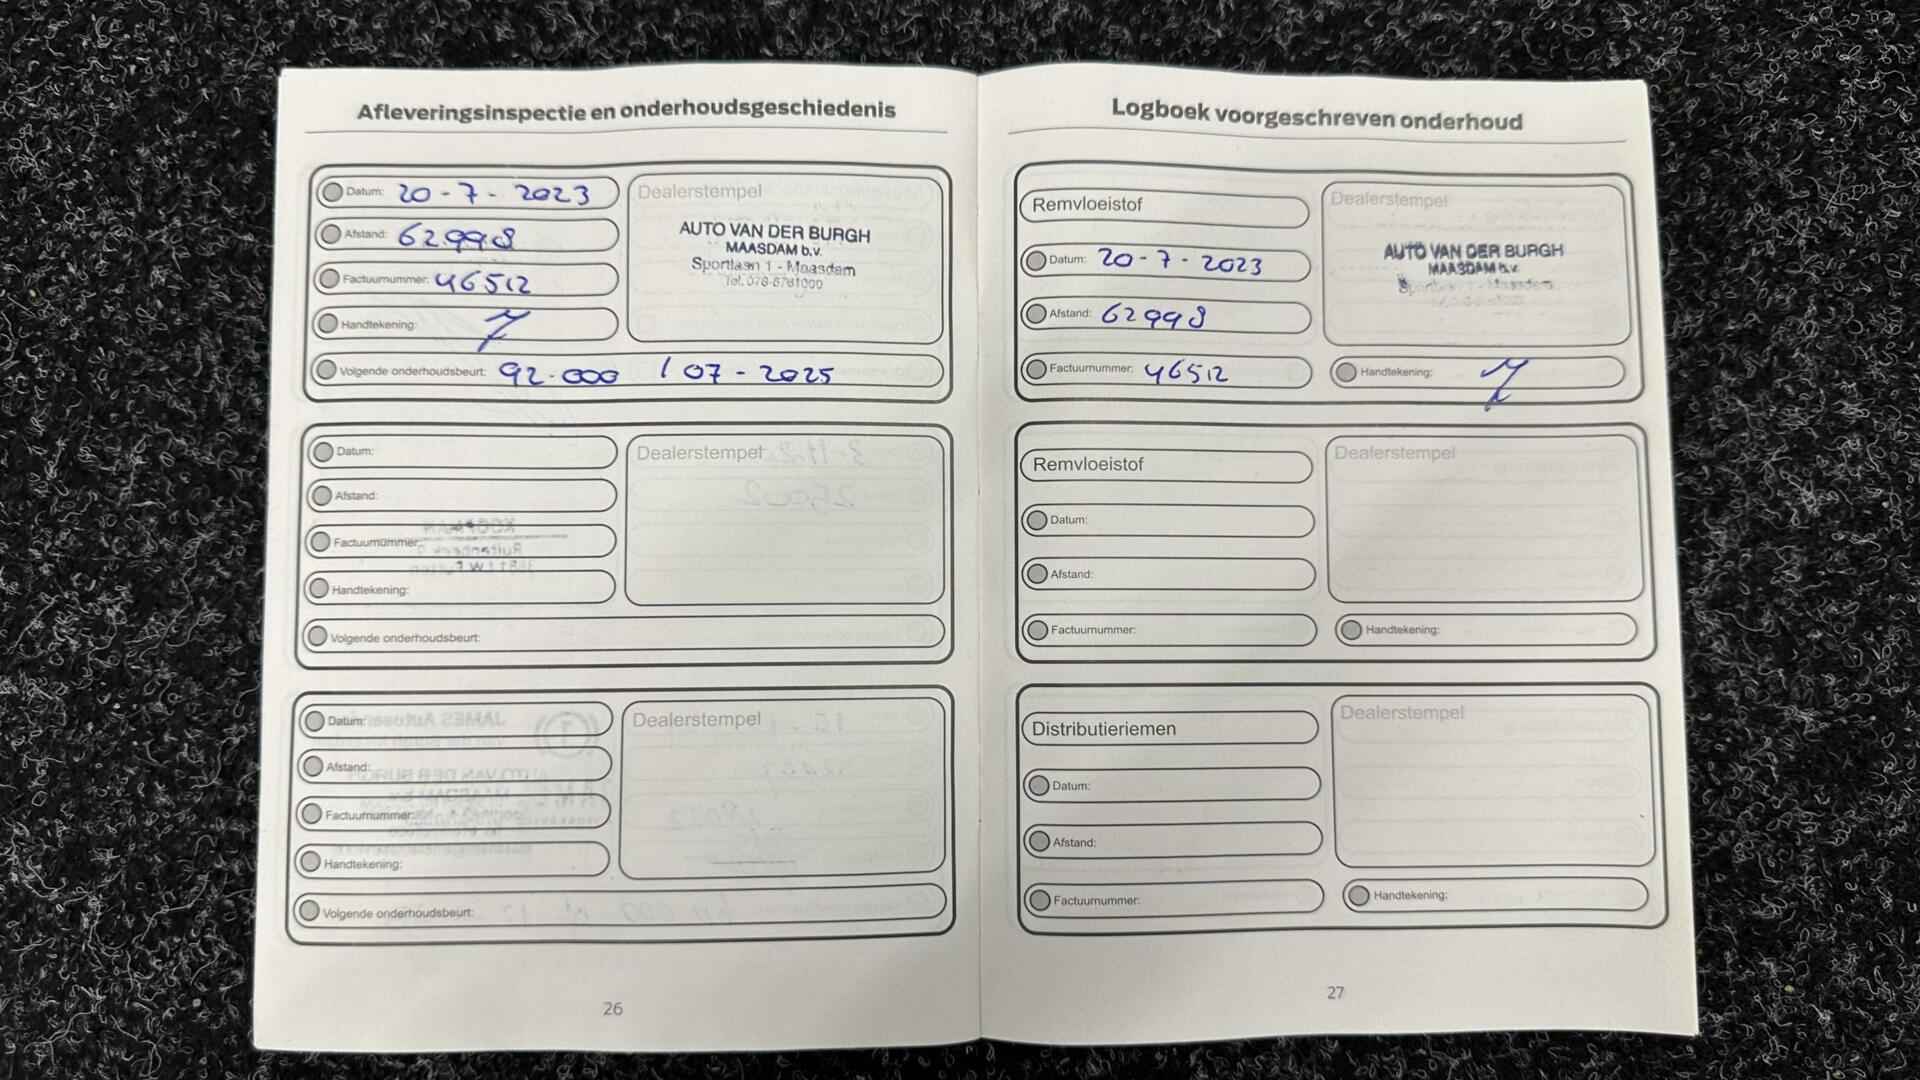 Afleveringsinspectie en onderhoudsgeschiedenis
Datum: 20-7-2023
Afstand: 62998
Factuurnummer: 46512
Handtekening:
Volgende onderhoudsbeurt: 92.000 / 07-2025
Dealerstempel
AUTO VAN DER BURGH
MAASDAM b.v.
Sportlaan 1 - Maasdam
Datum:
Afstand:
Factuurnummer:
Handtekening:
Volgende onderhoudsbeurt:
Dealerstempel
Datum:
Afstand:
Factuurnummer:
Handtekening:
Volgende onderhoudsbeurt:
Dealerstempel
26
Logboek voorgeschreven onderhoud
Remvloeistof
Datum: 20-7-2023
Afstand: 62998
Factuurnummer: 46512
Dealerstempel
AUTO VAN DER BURGH
MAASDAM b.v.
Handtekening:
Remvloeistof
Datum:
Afstand:
Factuurnummer:
Dealerstempel
Handtekening:
Distributieriemen
Datum:
Afstand:
Factuurnummer:
Dealerstempel
Handtekening:
27